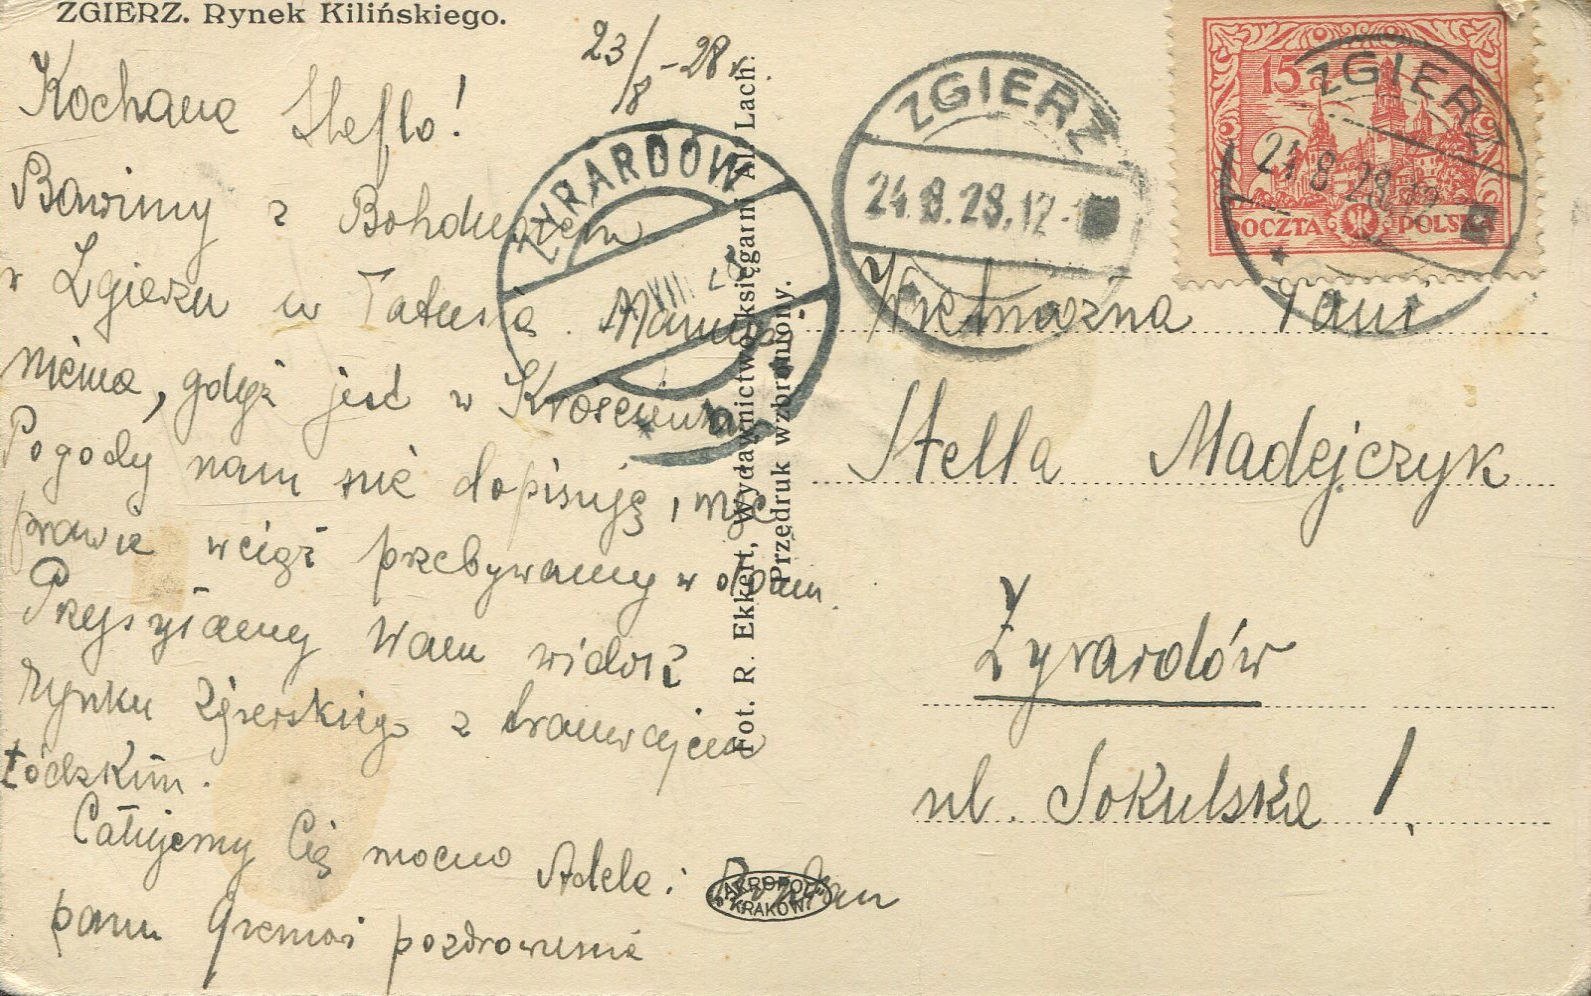 ZGIERZ. Rynek Kilińskiego.
23/8 - 28 r.
Kochana Steflo!
Bawimy z Bohdusiem
w Zgierzu u Tatusia. Mamusi
niema, gdyż jest w Krościenku
Pogody nam nie dopisują, my
prawie wciąż przebywamy w domu.
Przysyłamy Wam widok
rynku Zgierskiego z tramwajem
Łódzkim.
Całujemy Cię mocno Adela i Bohdan
panu pozdrowienia
Fot. R. Ekkert, Wydawnictwo księgarni Al. Lach.
Przedruk wzbroniony.
ŻYRARDÓW
VIII
ZGIERZ
24.8.28.12
15
POCZTA POLSKA
ZGIERZ
24 8 28.12
Wielmożna Pani
Stella Madejczyk
Żyrardów
ul. Sokulska 1.
AKROPOL
KRAKÓW